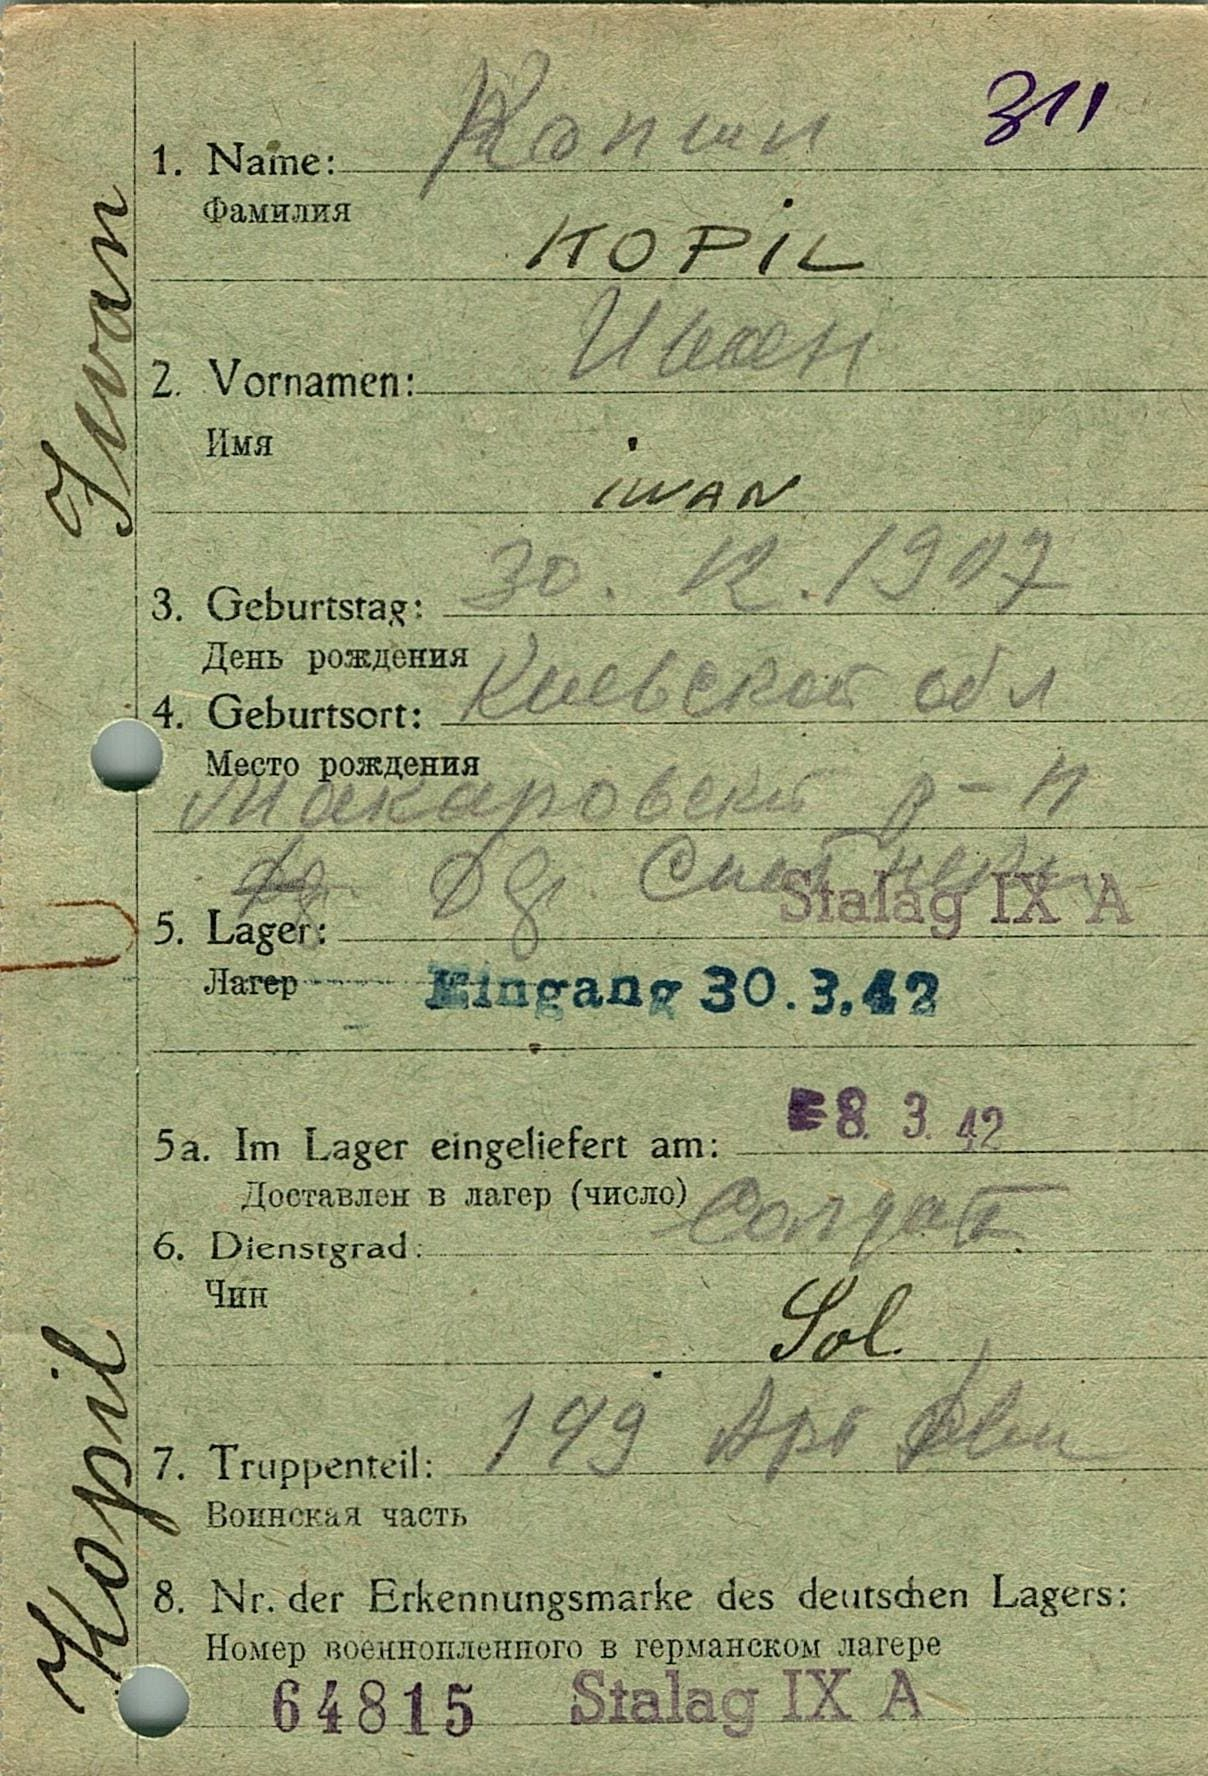 311
1. Name: Копил
Фамилия
KOPIL
Иван
2. Vornamen:
Имя
iwAN
3. Geburtstag: 30. 12. 1907
День рождения
4. Geburtsort: Киевской обл
Место рождения
Макаровски р-н
Stalag IX A
5. Lager:
Лагер
Eingang 30.3.42
8. 3. 42
5a. Im Lager eingeliefert am:
Доставлен в лагер (число)
6. Dienstgrad: Солдат
Чин
Sol.
7. Truppenteil: 199
Воинская часть
8. Nr. der Erkennungsmarke des deutschen Lagers:
Номер военнопленного в германском лагере
64815 Stalag IX A
Kopil Iwan